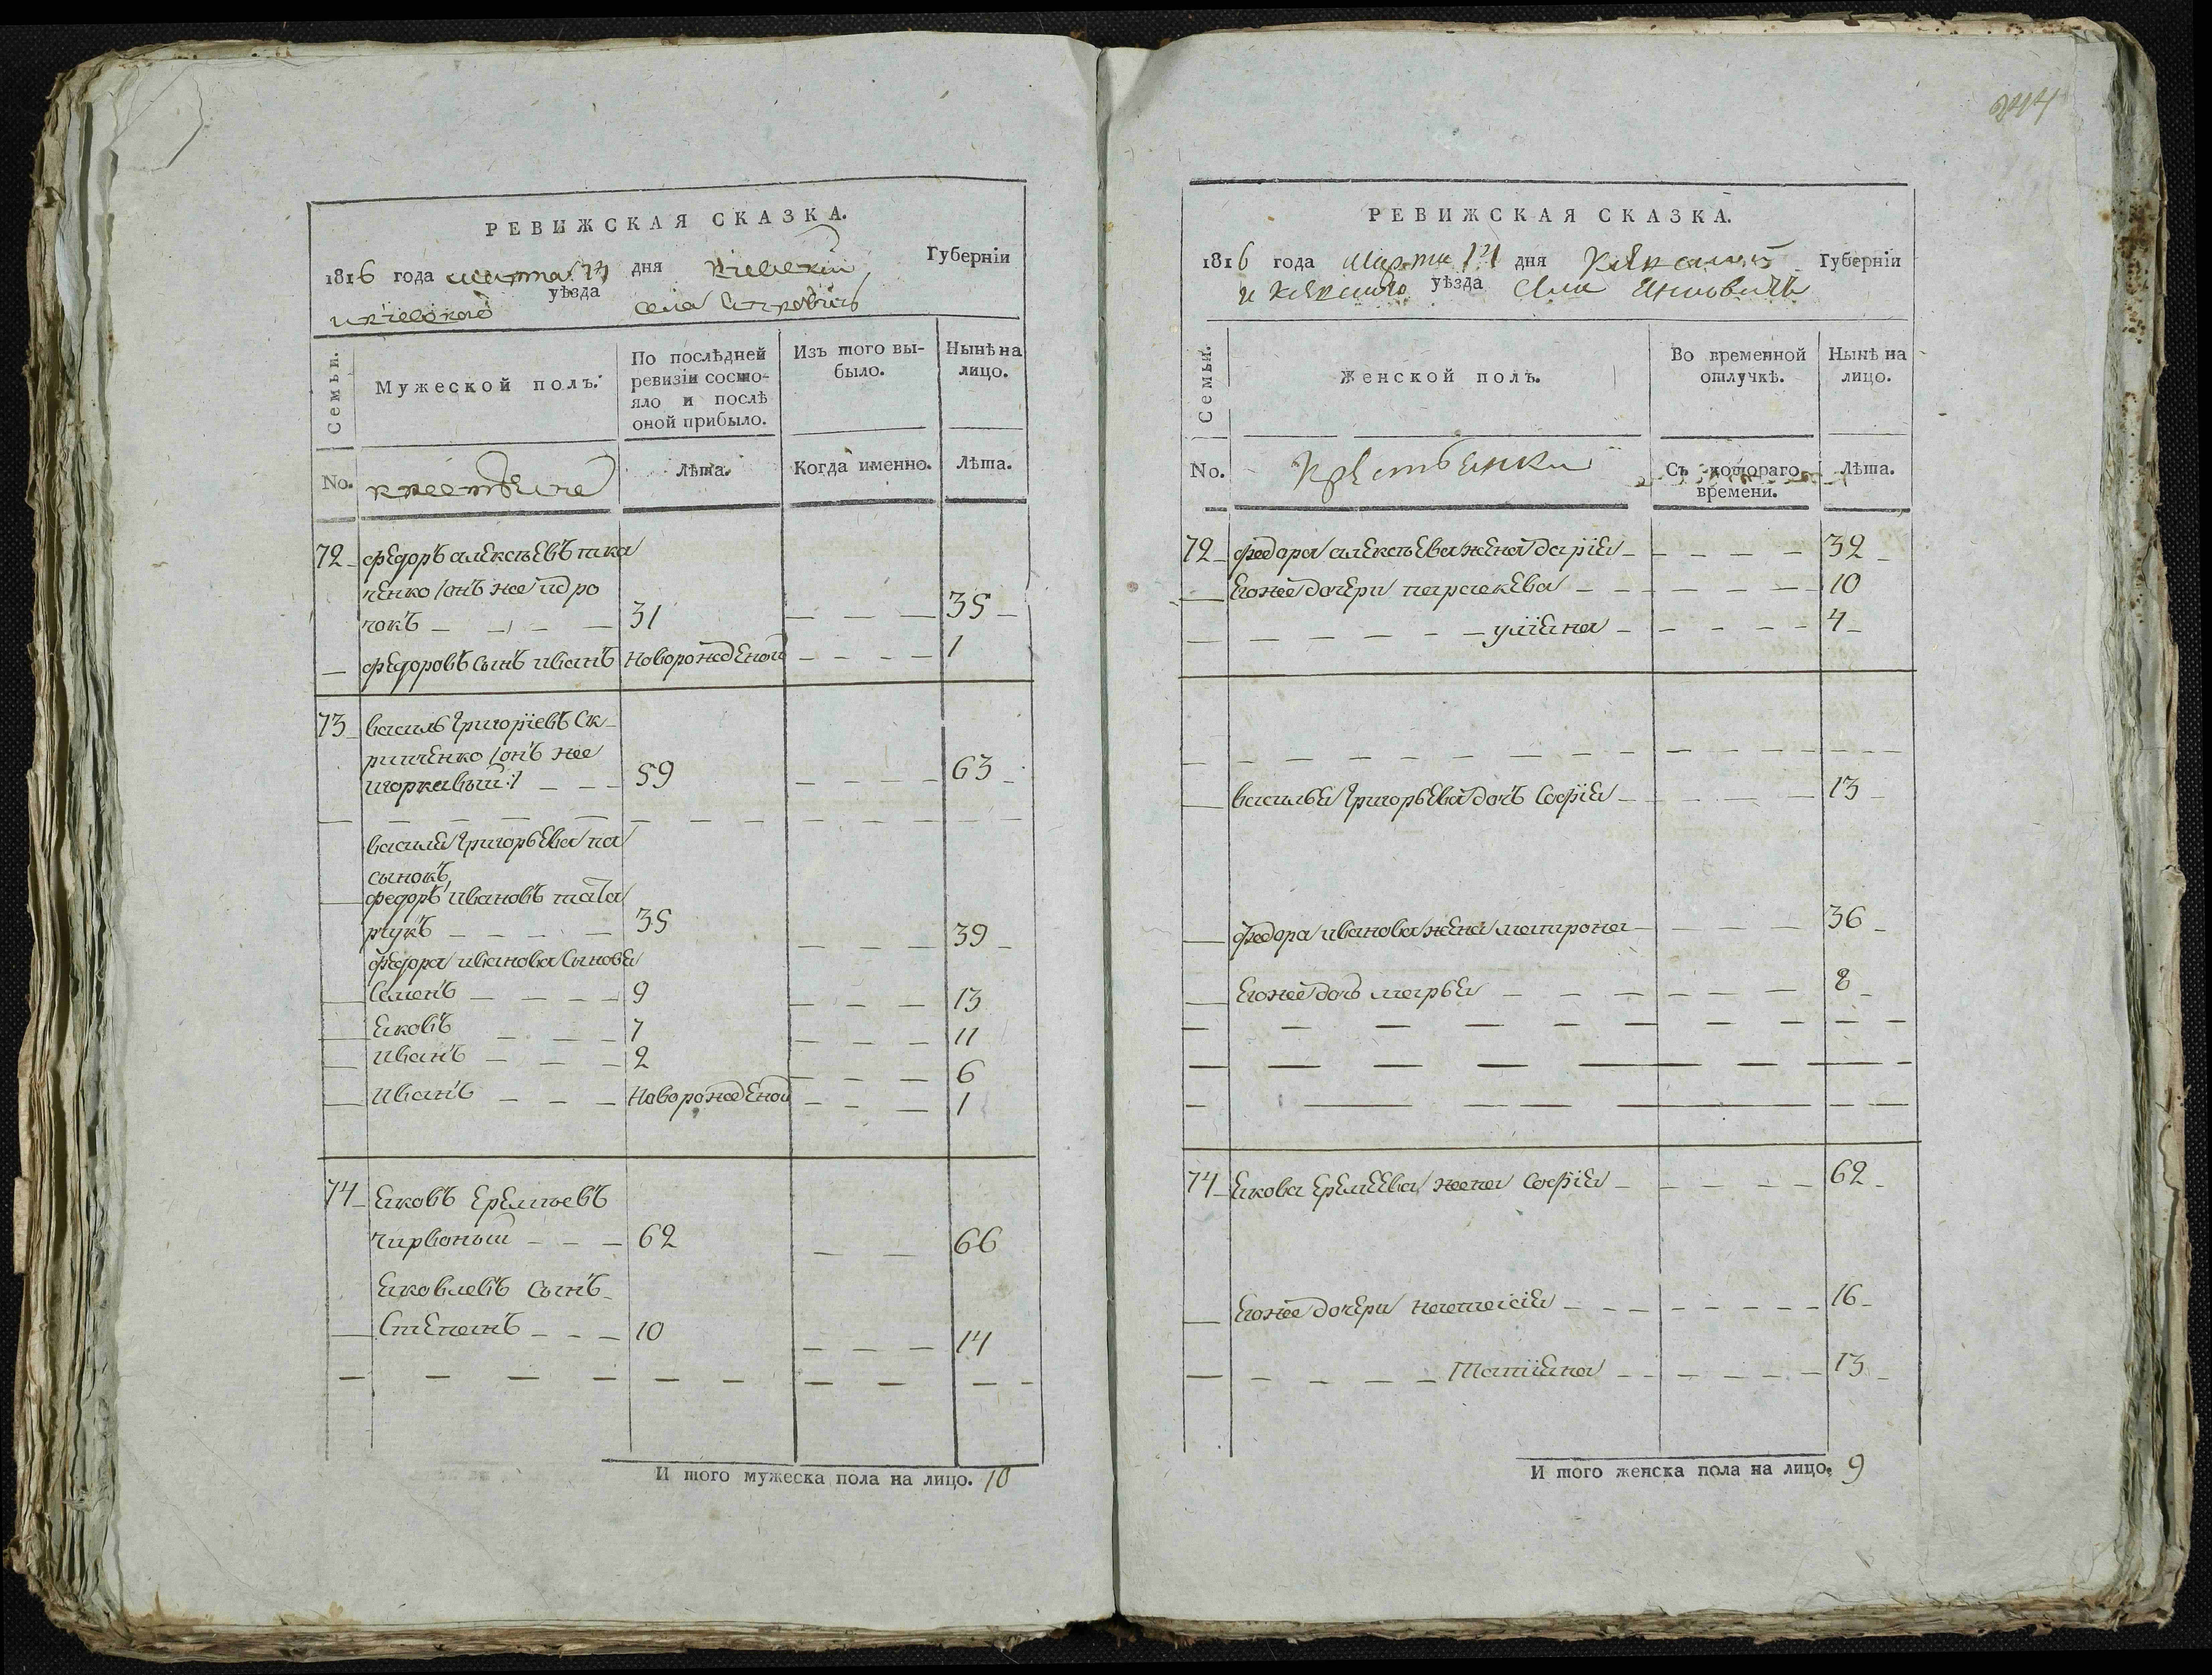 РЕВИЖСКАЯ СКАЗКА.
1816 года марта дня Киевской Губерніи
и киевского уѣзда села
Семьи.
Мужеской полъ.
По послѣдней
ревизіи состо-
яло и послѣ
оной прибыло.
Изъ того вы-
было.
Нынѣ на
лицо.
No.
крестьяне
Лѣта.
Когда именно.
Лѣта.
72 федоръ алексѣевъ тка
ченко /онъ же
чокъ 31 35
федоровъ сынъ иванъ новорожденой 1
73 василь григорїевъ ск
рипченко /онъ же
шоркавый:/ 59 63
василя григорьева па
сынокъ
федоръ ивановъ тата
рчукъ 35 39
федора иванова сыновя
семенъ 9 13
яковъ 7 11
иванъ 2 6
иванъ новорожденой 1
74 яковъ еремѣевъ
чирвоный 62 66
яковлевъ сынъ
степанъ 10 14
И того мужеска пола на лицо. 10
244
РЕВИЖСКАЯ СКАЗКА.
1816 года марта дня Киевской Губерніи
и киевского уѣзда села
Семьи.
Женской полъ.
Во временной
отлучкѣ.
Нынѣ на
лицо.
No.
крестьянки
Съ котораго
времени.
Лѣта.
72 федора алексѣева жена дарїя 32
егоже дочери параскева 10
улїяна 4
василья григорьева дочь софїя 13
федора иванова жена матрона 36
егоже дочь марья 8
74 якова еремеева жена софїя 62
егоже дочери настасїя 16
татїяна 13
И того женска пола на лицо. 9